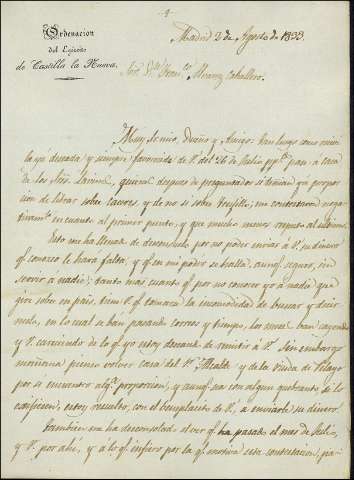 Ordenacion
del Ejército
de Castilla la Nueva.
Madrid 2 de Agosto de 1833.
Sor. Dn. Fran.co Alvarez Caballero.
Muy Sr. mio, Dueño y Amigo: tan luego como recibí
la de V. del 26 de Julio ppdo. pasé á casa
de los Sres. quienes despues de preguntados si tenian proporcion
de librar sobre Caceres, y de no si sobre Trujillo, me contestaron negativamente
en cuanto al primer punto, y que mucho menos respecto al ultimo.
Esto me ha llenado de desconsuelo por no poder enviar á V. su dinero
qe. conozco le hará falta, y qe. en mi poder se halla, aunqe. seguro, sin
servir á nadie; tanto mas cuanto qe. por no conocer yo á nadie que
gire sobre ese pais, tiene V. qe. tomarse la incomodidad de buscar y decirmelo,
en lo cual se pasan correos y tiempo, los meses van cayendo
y V. careciendo de lo qe. yo estoy deseando de remitir á V. Sin embargo
mañana pienso volver casa del Sr. y de la Viuda de
por si encuentro algª. proporcion, y aunqe. sea con algun quebranto si lo
estoy resuelto, con el beneplacito de V., á enviarle su dinero.
Tambien me ha desconsolado el ver qe. ha pasado el mes de Julio,
y V. por ahí, y á lo qe. infiero por la qe. motiva esta contestacion,